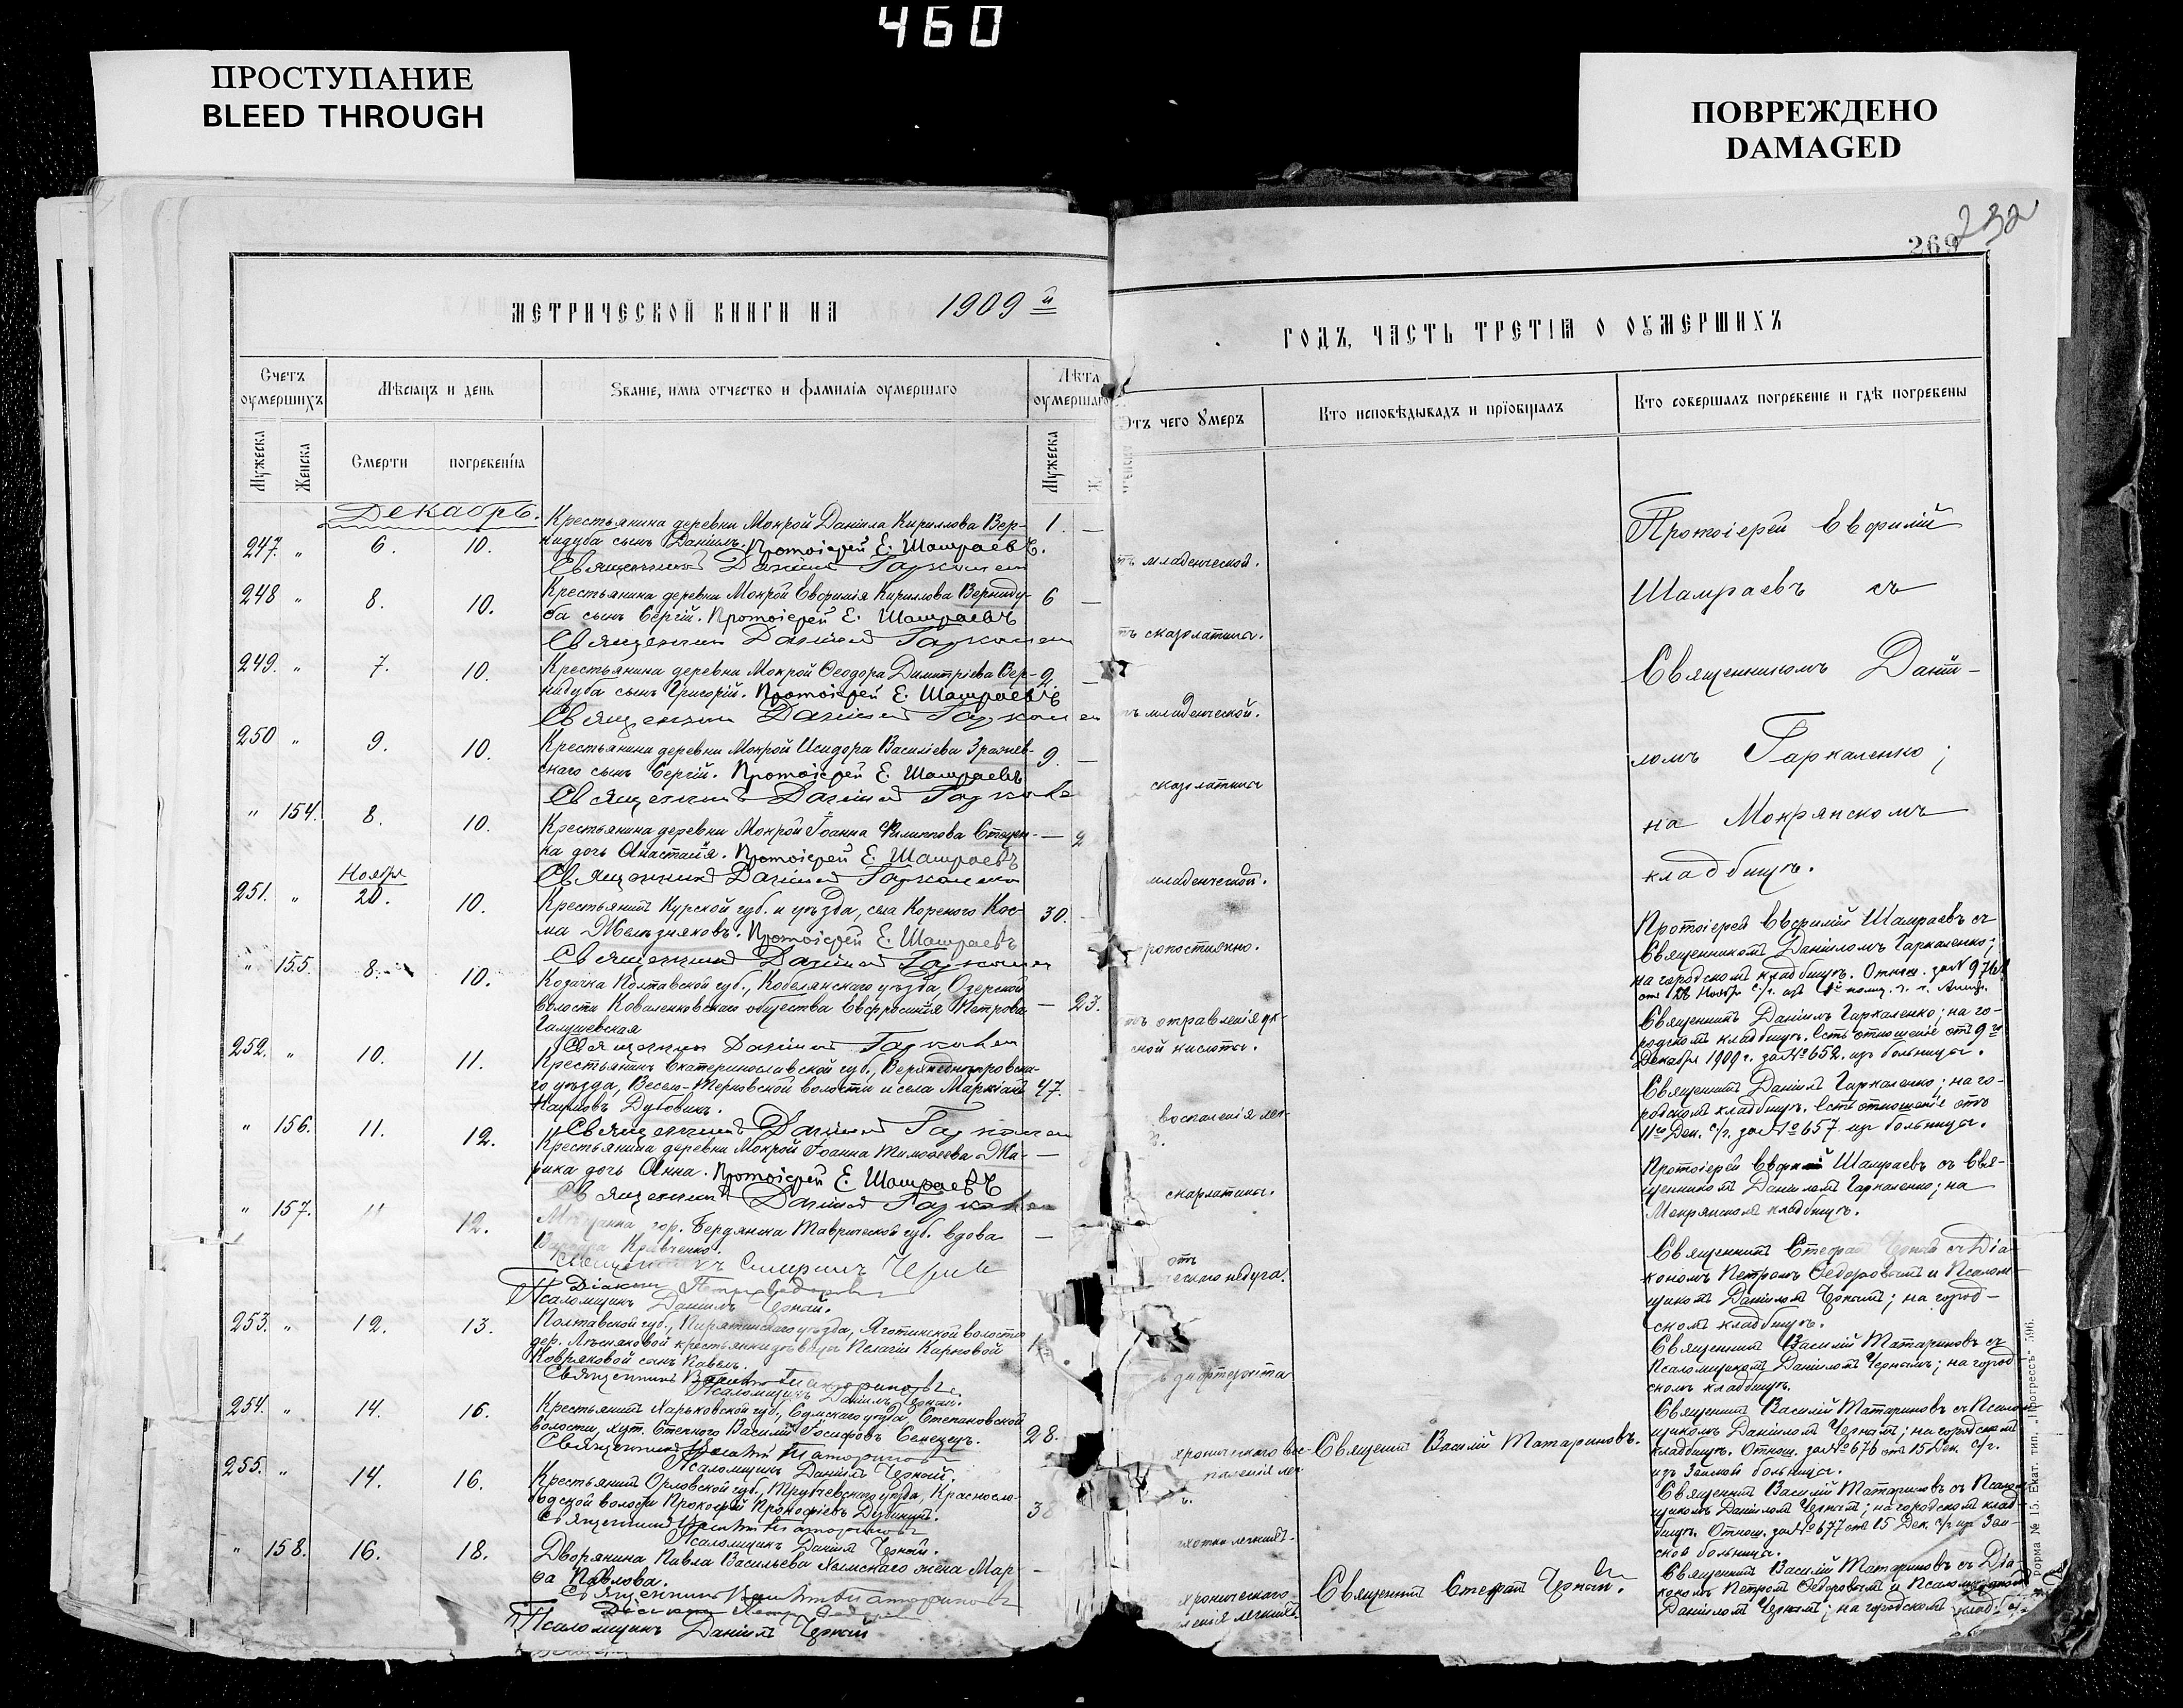 460
ПРОСТУПАНИЕ
BLEED THROUGH
ПОВРЕЖДЕНО
DAMAGED
269
232
МЕТРИЧЕСКОЙ КНИГИ НА 1909 й
ГОДЪ, ЧАСТЬ ТРЕТІЯ О ОУМЕРШИХЪ
Счетъ оумершихъ
Мѣсяцъ и день
Званіе, имя отчество и фамилія оумершаго
Лѣта оумершаго
Отъ чего умеръ
Кто исповѣдывалъ и пріобщалъ
Кто совершалъ погребеніе и гдѣ погребены
Мужеска
Женска
Смерти
погребенія
Мужеска
Декабрь.
247. " 6. 10.
Крестьянина деревни Мокрой Даніила Кириллова Вер-
нидуба сынъ Даніилъ. Протоіерей Е. Шамраевъ.
Священникъ Даніилъ Гаркаленко
1. —
младенческой.
248 " 8. 10.
Крестьянина деревни Мокрой Евфимія Кириллова Верниду-
ба сынъ Сергій. Протоіерей Е. Шамраевъ
Священникъ Даніилъ
6 —
скарлатины.
249. " 7. 10.
Крестьянина деревни Мокрой Ѳеодора Димитріева Вер-
нидуба сынъ Григорій. Протоіерей Е. Шамраевъ
Священникъ Даніилъ
2. —
младенческой.
250 " 9. 10.
Крестьянина деревни Мокрой Исидора Василіева Зражев-
скаго сынъ Сергій. Протоіерей Е. Шамраевъ
Священникъ Даніилъ
9. —
скарлатины
" 154. 8. 10.
Крестьянина деревни Мокрой Іоанна Филиппова Стецен-
ка дочь Анастасія. Протоіерей Е. Шамраевъ
Священникъ Даніилъ Гаркаленко
— 2
младенческой.
Протоіерей Евфимій
Шамраевъ съ
Священникомъ Даніи-
ломъ Гаркаленко;
на Мокрянскомъ
кладбищѣ.
Ноября
251. " 20. 10.
Крестьянинъ Курской губ. и уѣзда, села Кореного Кос-
ма Желѣзняковъ. Протоіерей Е. Шамраевъ
Священникъ Даніилъ
30. -
скоропостижно.
Протоіерей Евфимій Шамраевъ съ
Священникомъ Даніиломъ Гаркаленко;
на городскомъ кладбищѣ. Отнош. за №
" 155. 8. 10.
Козачка Полтавской губ., Кобелякскаго уѣзда, Озерской
волости Коваленковскаго общества Евфросинія Петрова
Галушевская
Священникъ Даніилъ
— 23.
отравленія ук-
сной кислоты.
Священникъ Даніилъ Гаркаленко; на го-
родскомъ кладбищѣ. Есть отношеніе отъ 9го
Декабря 1909 г. за № 652. изъ больницы.
252. " 10. 11.
Крестьянинъ Екатеринославской губ., Верхнеднѣпровска-
го уѣзда, Весело-Терновской волости и села Маркіанъ
Наумовъ Дубовикъ.
Священникъ Даніилъ
47. -
воспаленія лег-
Священникъ Даніилъ Гаркаленко; на го-
родскомъ кладбищѣ. Есть отношеніе отъ
11го Дек. с/г. за № 657 изъ больницы.
" 156. 11. 12.
Крестьянина деревни Мокрой Іоанна Тимоѳеева
дочь Анна. Протоіерей Е. Шамраевъ
Священникъ Даніилъ
—
скарлатины.
Протоіерей Шамраевъ съ Свя-
щенникомъ Даніиломъ Гаркаленко; на
Мокрянскомъ кладбищѣ.
" 157. 11 12.
Мѣщанка гор. Бердянска Таврической губ. вдова
Кравченко.
Діаконъ
Псаломщикъ Даніилъ Черный.
—
отъ
недуга.
Священникъ Стефанъ Черный съ Діа-
кономъ Петромъ Ѳедоровымъ и Псалом-
щикомъ Даніиломъ Чернымъ; на город-
скомъ кладбищѣ.
253. " 12. 13.
Полтавской губ., Пирятинскаго уѣзда, Яготинской волости
дер. Лѣсняковой крестьянки дѣвицы Пелагіи Карповой
Ковряковой сынъ Павелъ.
Священникъ
Псаломщикъ Даніилъ Черный.
дифтерита
Священникъ Василій Татариновъ съ
Псаломщикомъ Даніиломъ Чернымъ; на город
скомъ кладбищѣ.
254. " 14. 16.
Крестьянинъ Харьковской губ., Сумскаго уѣзда, Степановской
волости, хут. Степного Василій Іосифовъ Сенецъ.
Священникъ
Псаломщикъ Даніилъ Черный.
28.
хроническаго вос-
паленія лег
Священникъ Василій Татариновъ.
Священникъ Василій Татариновъ съ Псалом
щикомъ Даніиломъ Чернымъ; на городскомъ
кладбищѣ. Отнош. за № 676 отъ 15 Дек. с/г.
изъ Земской больницы.
255. " 14. 16.
Крестьянинъ Орловской губ., Трубчевскаго уѣзда, Красносло-
бодской волости Прокофій Прокофіевъ Дубининъ.
Священникъ
Псаломщикъ Даніилъ Черный.
38
чахотки легкихъ.
Священникъ Василій Татариновъ съ Псалом
щикомъ Даніиломъ Чернымъ; на городскомъ клад
бищѣ. Отнош. за № 677 отъ 15 Дек. с/г изъ Зем-
ской больницы.
" 158. 16. 18.
Дворянина Павла Васильева Хымскаго жена Мар-
ѳа Павлова.
Священникъ
Псаломщикъ Даніилъ Черный
-
хроническаго
ленія легкихъ
Священникъ Стефанъ Черный.
Священникъ Василій Татариновъ съ Діа-
кономъ Петромъ Ѳедоровымъ и Псаломщикомъ
Даніиломъ Чернымъ; на городскомъ
Форма № 15. Екат. тип. „Прогрессъ" 596.